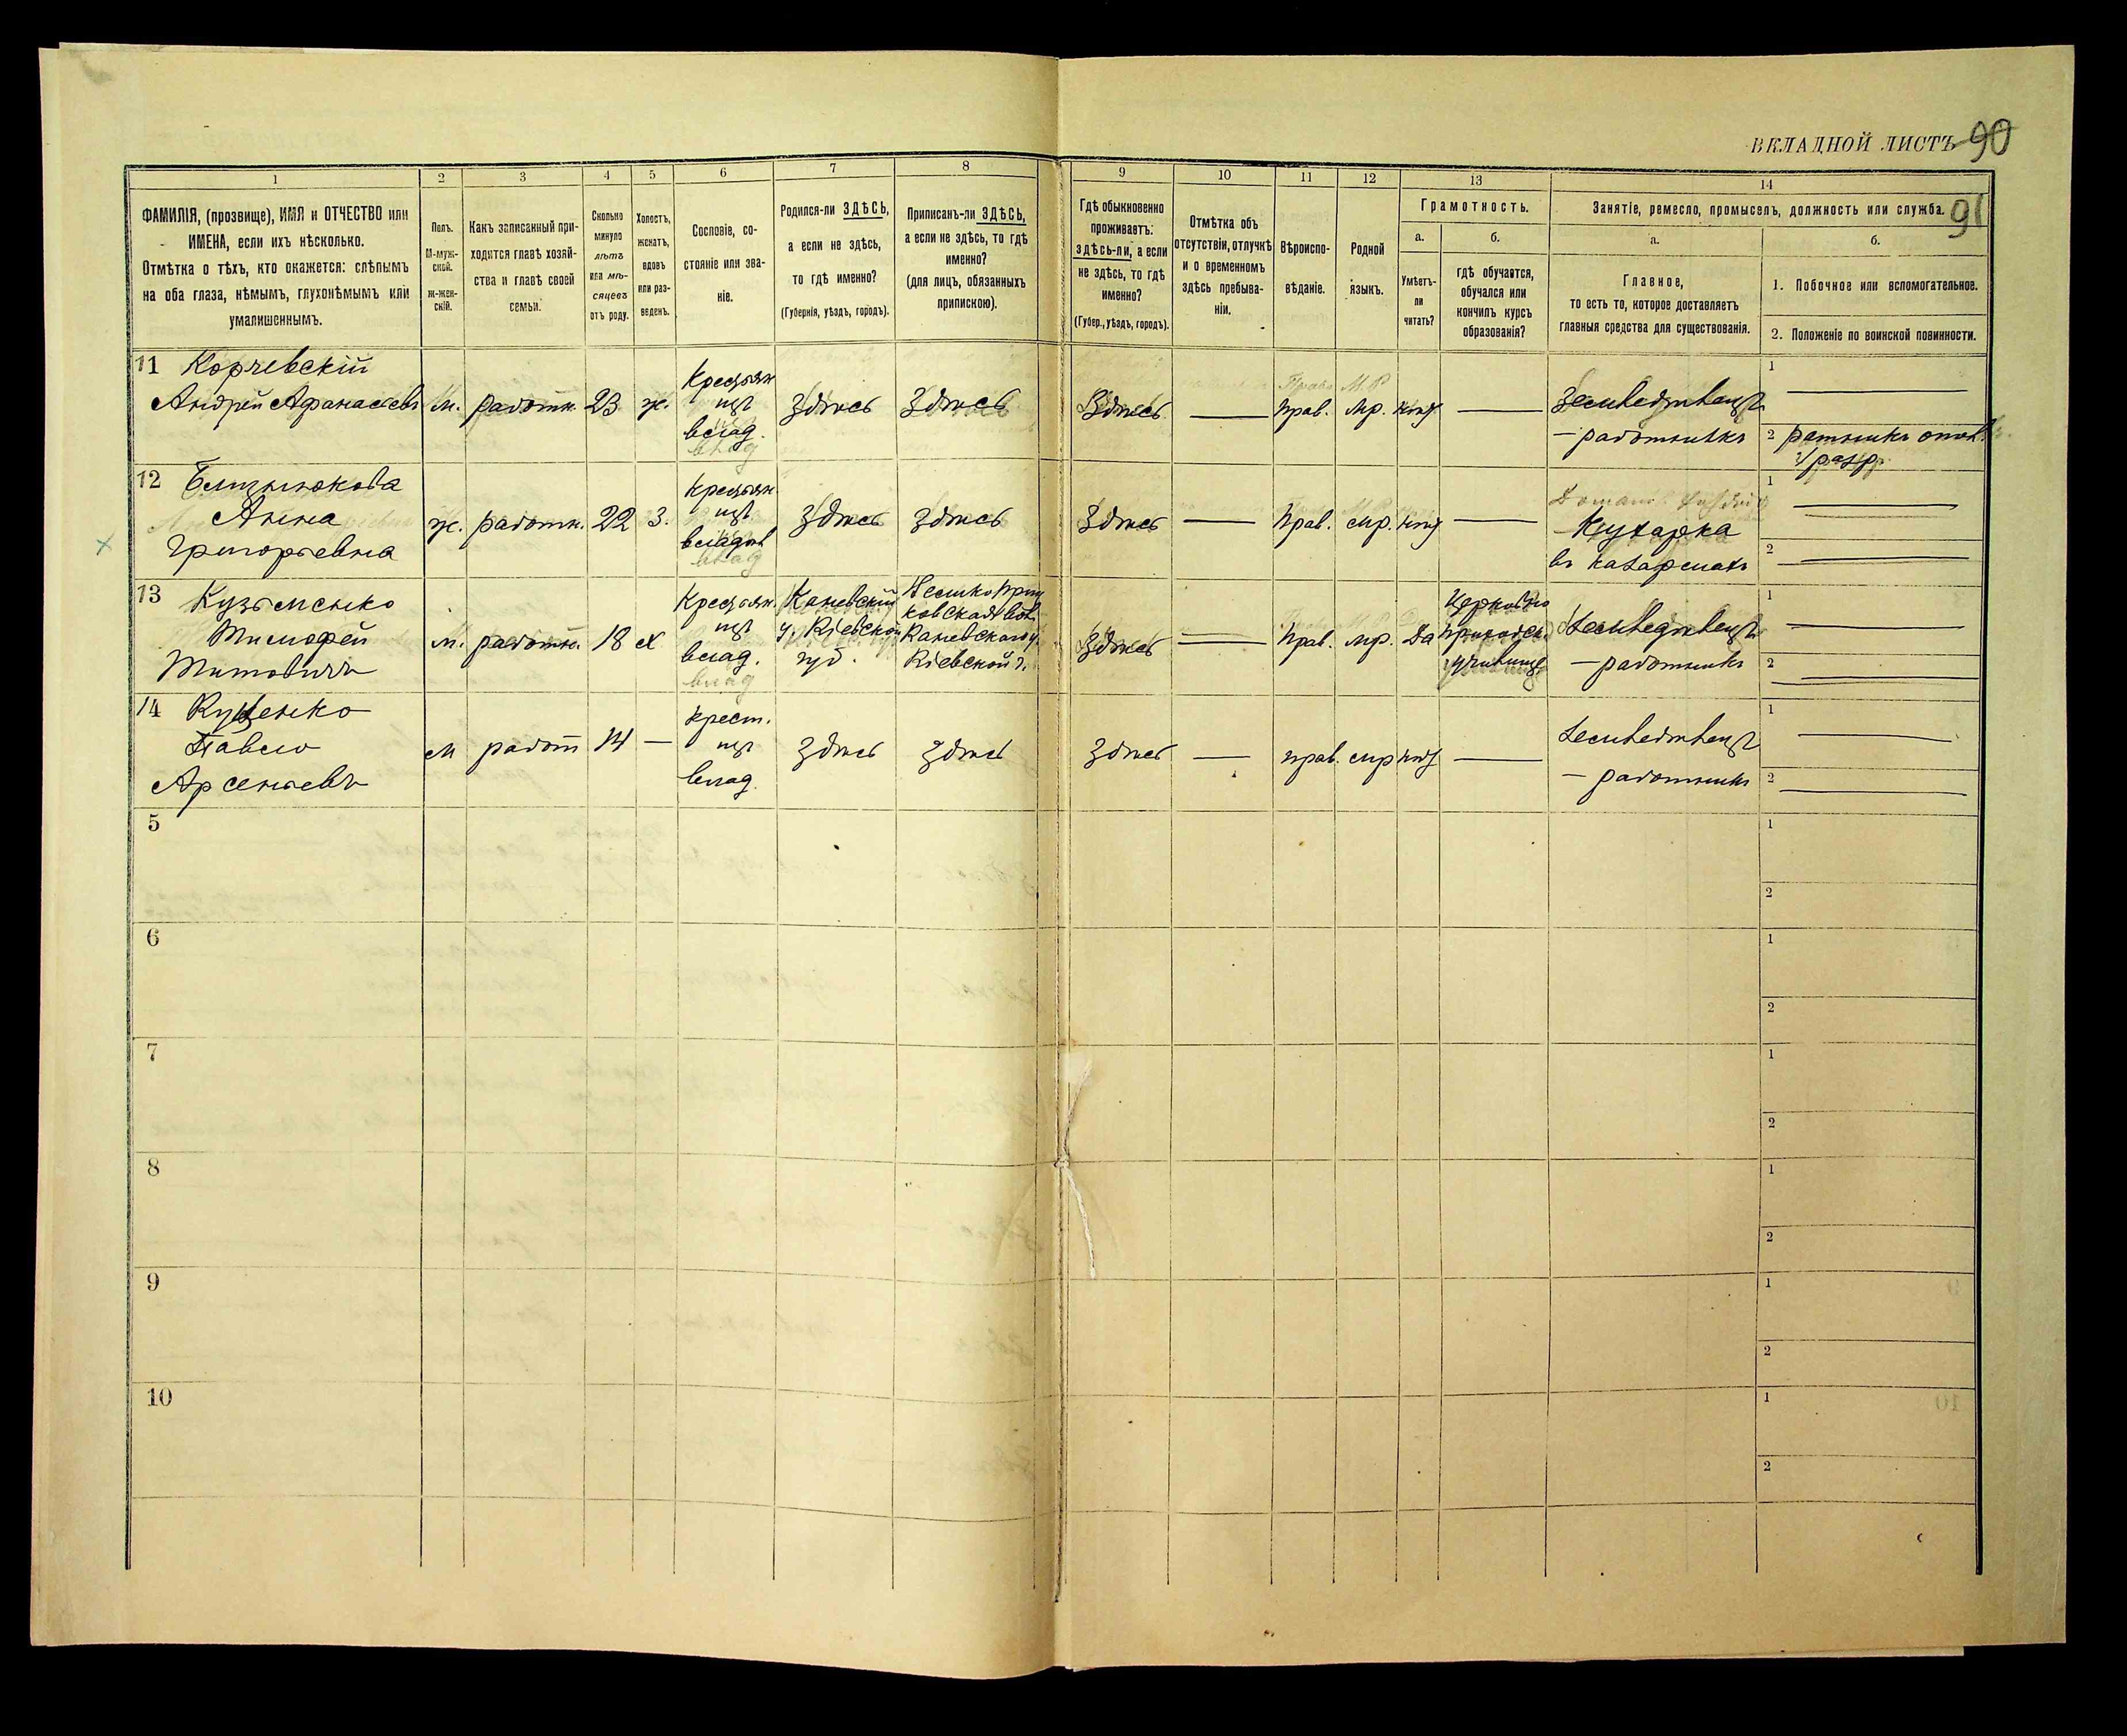 ВКЛАДНОЙ ЛИСТЪ 90
91
1 2 3 4 5 6 7 8 9 10 11 12 13 14
ФАМИЛІЯ, (прозвище), ИМЯ и ОТЧЕСТВО или
ИМЕНА, если ихъ нѣсколько.
Отмѣтка о тѣхъ, кто окажется: слѣпымъ
на оба глаза, нѣмымъ, глухонѣмымъ или
умалишеннымъ.
Полъ.
М-муж-
ской.
ж-жен-
скій.
Какъ записанный при-
ходится главѣ хозяй-
ства и главѣ своей
семьи.
Сколько
минуло
лѣтъ
или мѣ-
сяцевъ
отъ роду.
Холостъ,
женатъ,
вдовъ
или раз-
веденъ.
Сословіе, со-
стояніе или зва-
ніе.
Родился-ли ЗДѢСЬ,
а если не здѣсь,
то гдѣ именно?
(Губернія, уѣздъ, городъ).
Приписанъ-ли ЗДѢСЬ,
а если не здѣсь, то гдѣ
именно?
(для лицъ, обязанныхъ
припискою).
Гдѣ обыкновенно
проживаетъ:
здѣсь-ли, а если
не здѣсь, то гдѣ
именно?
(Губер., уѣздъ, городъ).
Отмѣтка объ
отсутствіи, отлучкѣ
и о временномъ
здѣсь пребыва-
ніи.
Вѣроиспо-
вѣданіе.
Родной
языкъ.
Грамотность.
а.
Умѣетъ-
ли
читать?
б.
гдѣ обучается,
обучался или
кончилъ курсъ
образованія?
Занятіе, ремесло, промыселъ, должность или служба.
а.
Главное,
то есть то, которое доставляетъ
главныя средства для существованія.
б.
1. Побочное или вспомогательное.
2. Положеніе по воинской повинности.
11 Корчевскій
Андрей Афанасьевъ м. работн. 23 ж. Крестьян. изъ влад. Здѣсь Здѣсь Здѣсь — прав. мр. нѣтъ — Земледѣлецъ
— работникъ
1 —
2 ратникъ опол.
разр.
12
Анна
Григорьевна ж. работн. 22 з. Крестьян. изъ владѣл Здѣсь Здѣсь Здѣсь — Прав. мр. нѣтъ —
Кухарка
въ казармахъ
1 —
2 —
13 Кузьменко
Тимофей
Титовичъ м. работн. 18 х Крестьян. изъ влад. Каневскій у. Кіевской губ.
Каневскаго у.
Кіевской г. Здѣсь — Прав. мр. Да Церковно приходск. училище Земледѣлецъ
— работникъ
1 —
2 —
14 Куценко
Павелъ
Арсеньевъ м работ 14 — Крест. изъ влад. Здѣсь Здѣсь Здѣсь — прав. мр нѣтъ — Земледѣлецъ
— работникъ
1 —
2 —
5 1
2
6 1
2
7 1
2
8 1
2
9 1
2
10 1
2